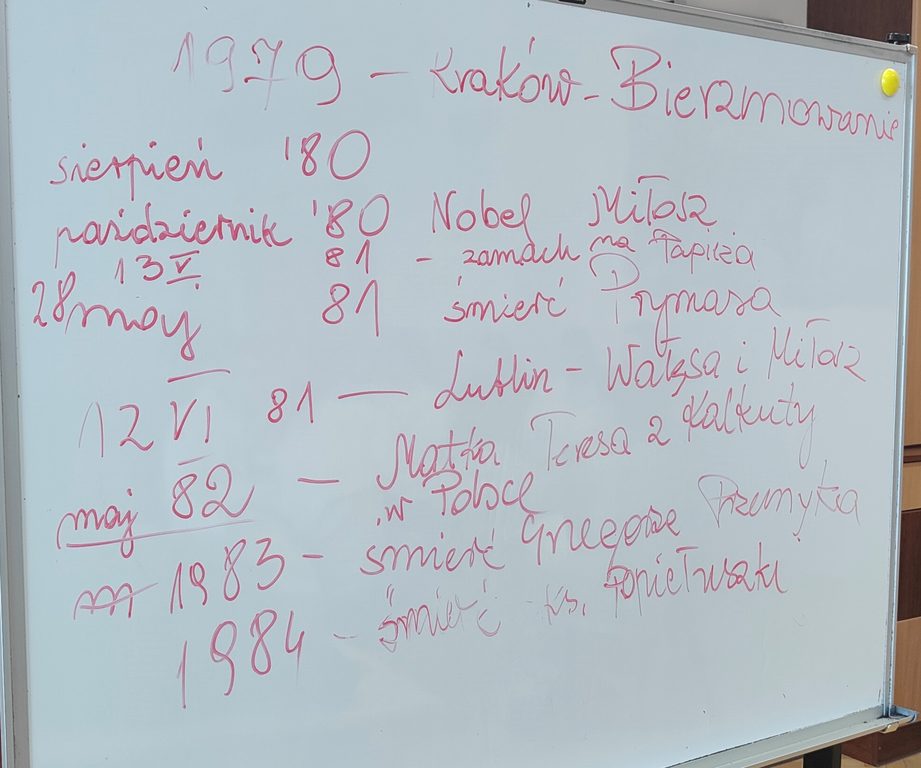 1979 – Kraków – Bierzmowanie
sierpień '80
październik '80 Nobel Miłosz
13 V 81 - zamach na Papieża
28 maj 81 śmierć Prymasa
12 VI 81 — Lublin - Wałęsa i Miłosz
maj 82 — Matka Teresa z Kalkuty
w Polsce
1983 - śmierć Grzegorza Przemyka
1984 - śmierć ks. Popiełuszki